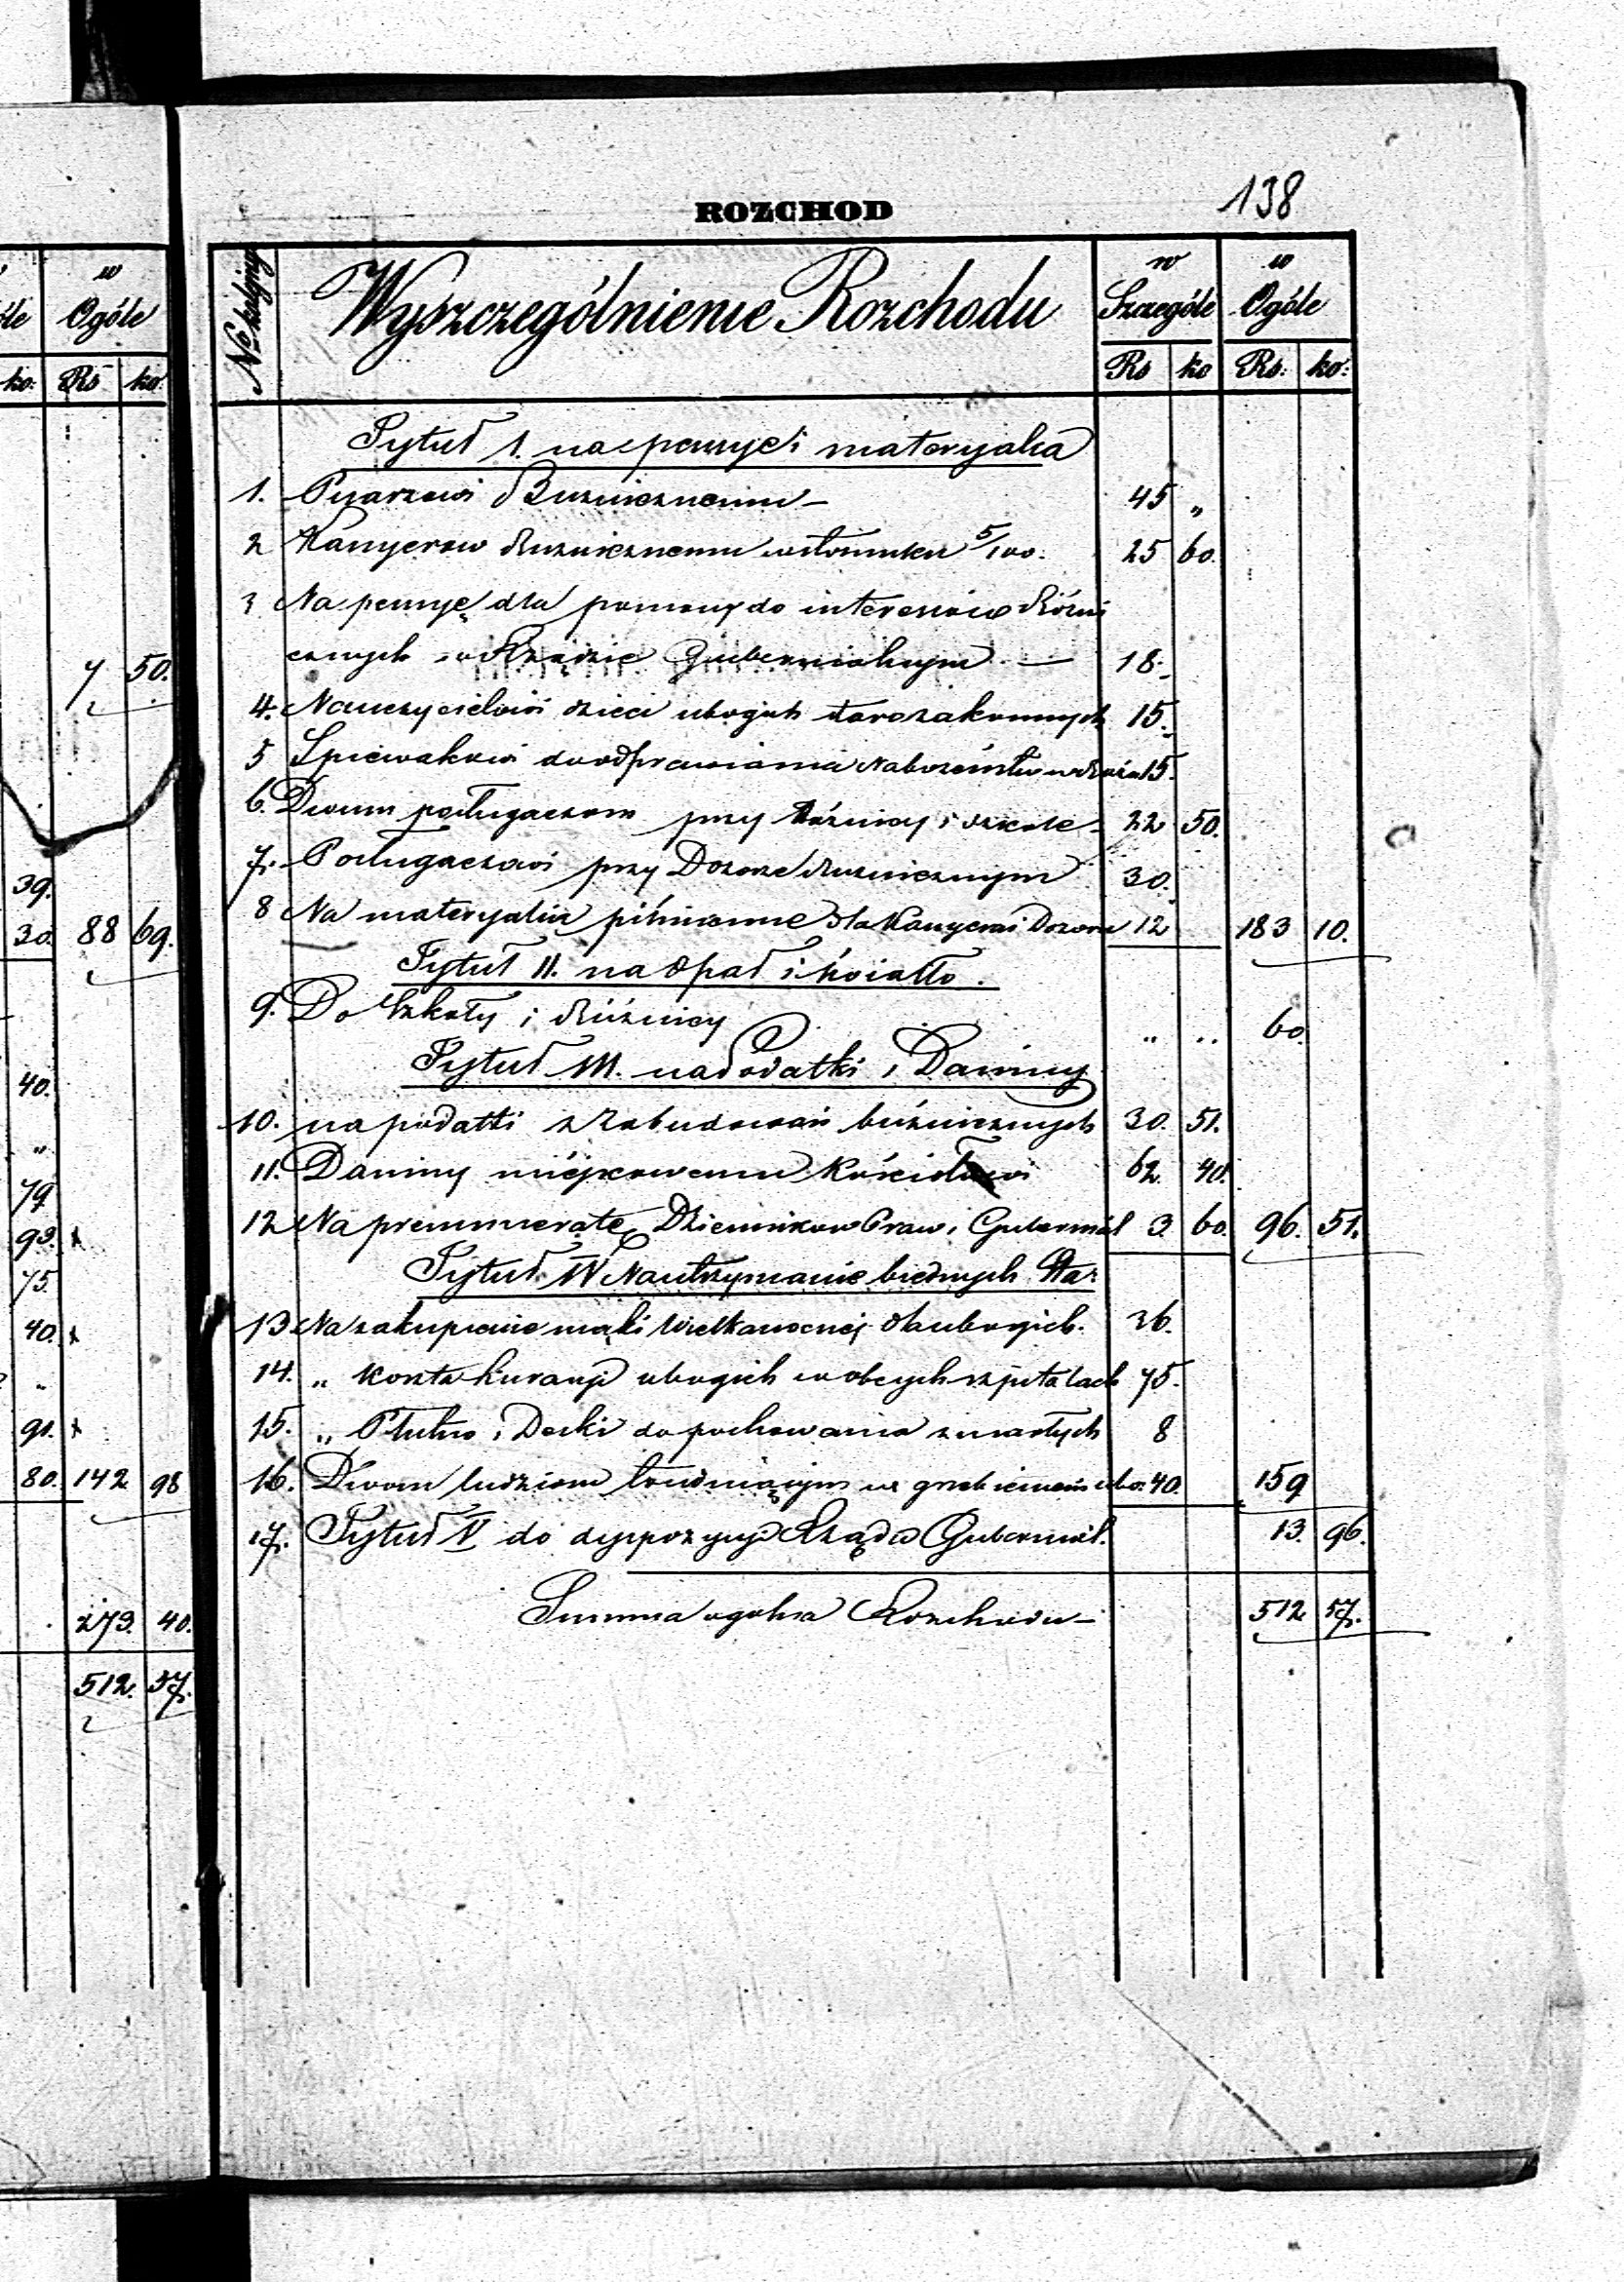 ROZCHOD
138
No kolejny
Wyszczególnienie Rozchodu
w Szczególe
w Ogóle
Rs ko Rs: ko:
w Ogóle
ko: Rs ko:
Tytuł 1. na pensye i materyała
1. Pisarzowi Buznicznemu — 45 „
2 Kassyerow Buznicznemu w stosunku 5/100. 25 60.
3 Na pensyę dla pomocy do interesów Bóźni
cznych w Rządzie Gubernialnym — 18.
4. Nauczycielowi dzieci ubogich starozakonnych 15.
5 Spiewakowi do odprawiania Nabożeństw w 15.
6. Dwum posługaczom przy Bóżnicy i szkole 22 50.
7. Posługaczowi przy Dozorze Buznicznym 30.
8 Na materyalia piśmienne dla Kassyera i Dozoru 12 183 10.
Tytuł II. na Opał i światło.
9. Do Szkoły i Bóżnicy „ „ 60.
Tytuł III. na Podatki i Daniny
10. na podatki z Zabudowań bużnicznych 30. 51.
11. Daniny miejscowemu Kościołowi 62. 40.
12 Na prenumeratę Dzienników Praw i Gubernial 3. 60. 96. 51.
Tytuł IV Na utrzymanie biednych Star
13 Na zakupienie mąki Wielkanocnej dla ubogich. 36.
14. „ koszta kuracyi ubogich w obcych szpitalach 75.
15. „ Płutno i Deski do pochowania zmarłych 8
16. Dwom ludziom trudniącym się grzebieniem ubo. 40. 159
17. Tytuł V do dyspozycyi Rządu Gubernial. 13. 96.
Summa ogolna Rozchodu — 512 57.
7 50.
39.
30. 88 69.
40.
„
79
93. x
75.
40. x
„
91. x
80. 142 98
273. 40.
512. 57.